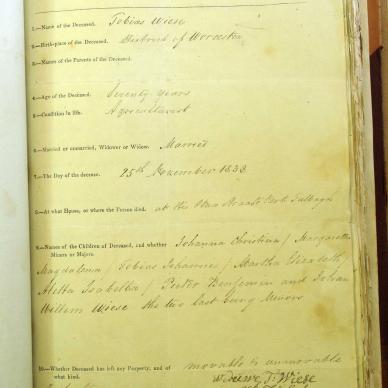 1.—Name of the Deceased. Tobias Wiese
2.—Birth-place of the Deceased. District of Worcester
3.—Names of the Parents of the Deceased.
4.—Age of the Deceased. Seventy years
5.—Condition in life. Agriculturist
6.—Married or unmarried, Widower or Widow. Married
7.—The Day of the decease. 25th November 1838
8.—At what House, or where the Person died. at the Tulbagh
9.—Names of the Children of Deceased, and whether Johanna Christina / Margaretha
Minors or Majors.
Magdalena / Tobias Johannes / Martha Elizabeth /
Aletta Isabella / Pieter Benjamin and Johan
Willem Wiese the two last being Minors
10.—Whether Deceased has left any Property, and of movable & unmovable
what kind.
T. Wiese